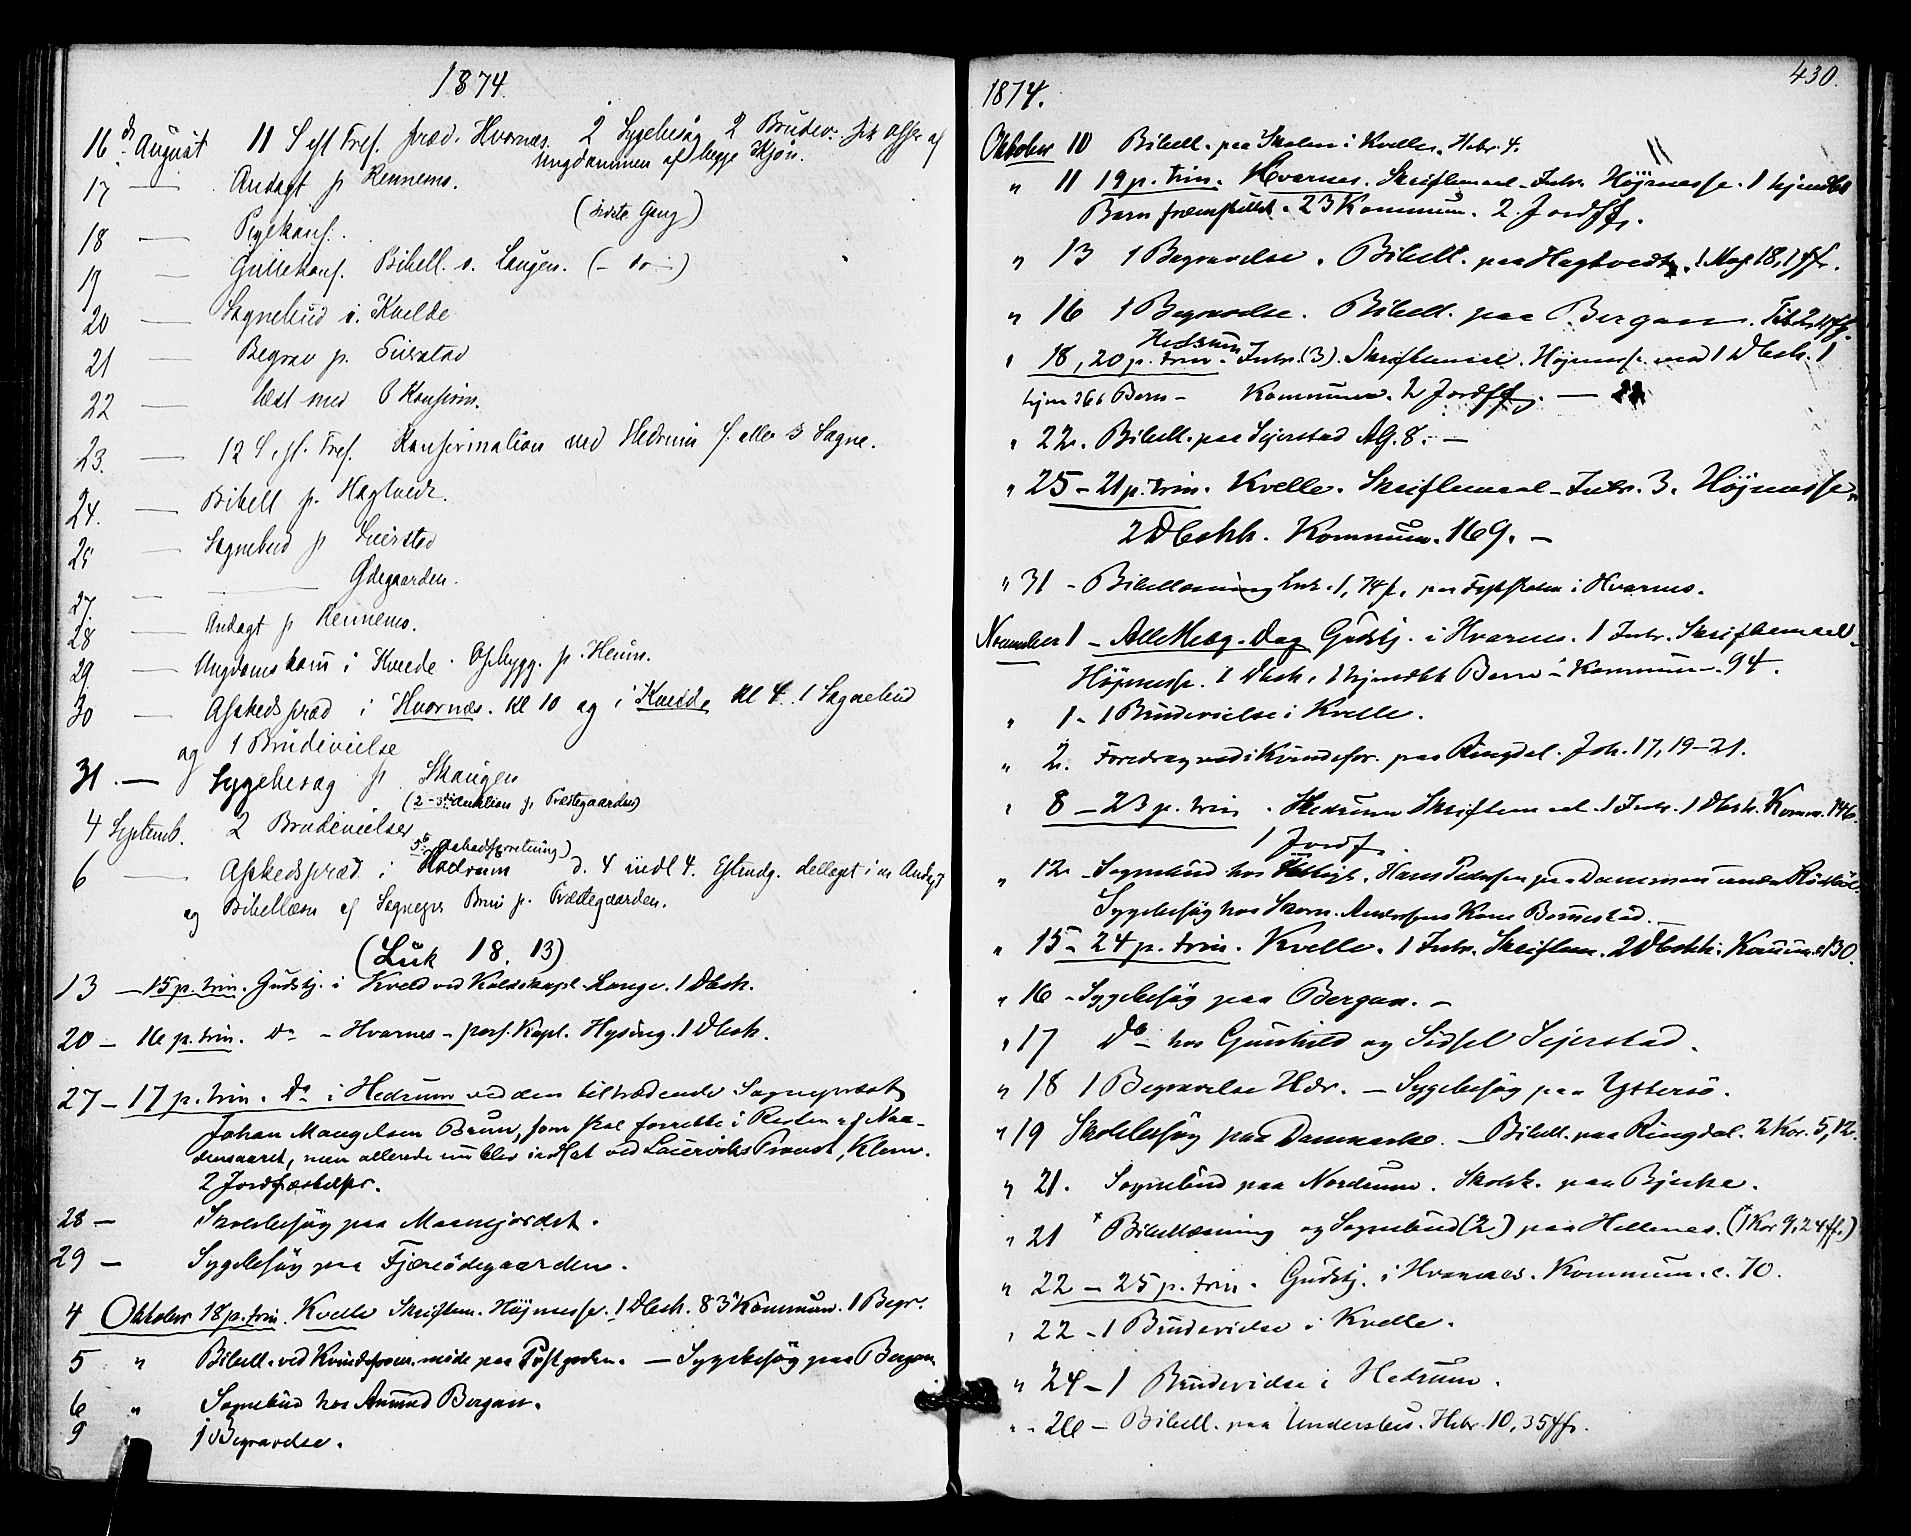 1874
16 d. August 11 S. eft. Tref. præd. Hvarnæs. 2 Sygebesøg 2 Brudev. fik af
Ungdommen af begge Kjøn.
17 — Andagt p. Rennems.
(sidste Gang)
18 — Pigekonf.
19 — Guttekonf. Bibell. v. Laugen. (— do —)
20 — Sognebud i Kvelde
21 — Begrav p. Seierstad
22 — læst med Konfirm.
23. — 12 S. eft. Tref. Konfirmation ved Hedrum f. alle 3 Sogne.
24. — Bibell p. Hagtvedt.
25 — Sognebud p Seierstad
27. — — Ødegaarden.
28 — Andagt p Rennems.
29 — Ungdomskom i Kvelde. Opbygg. p. Heum.
30 — Afskedspræd i Hvarnæs. Kl 10 og i Kvelde Kl 4. 1 Sognebud
og 1 Brudevielse
31. — Sygebesøg p Skaugen
(2 — p Præstegaarden)
4 Septemb. 2 Brudevielser
6 — Afskedspræd i Hedrum d. 4
og Bibellæsn af p. Præstegaarden.
(Luk 18. 13)
13 — 15 p. trin. Gudstj. i Kveld ved Kaldskapl. Lange. 1 Dbsh.
20 — 16 p. trin. Do — Hvarnes — pers. Kapl. Hysing. 1 Dbsh.
27 — 17 p. trin. Do i Hedrum ved den tiltrædende Sognepræst
Johan Mangelsen Brun, som skal forrette i Resten af Naa-
densaaret, men allerede nu blev indsat ved Laurviks Provst, Klem.
2 Jordfæstelser.
28 — Skolebesøg paa Maanejordet.
29 — Sygebesøg paa Fjæreödegaarden.
4 Oktober 18 p. trin. Kvelle Skriftem. Højmesse. 1 Dbsh. 83 Kommun. 1 Begr.
5 " Bibell. ved Kvindeforen. møde paa — Sygebesøg paa Bergan
6 " Sognebud hos Amund Bergan.
9 " 1 Begravelse.
430.
1874.
Oktober 10 Bibell. paa Skolen i Kvelle. Hebr. 4.
" 11 19 p. trin. Hvarnes. Skriftemaal — Intr. Højmesse. 1 hjemdbt
Barn fremstillet. 23 Kommun. 2 Jordff.
" 13 1 Begravelse. Bibell. paa Hagtvedt. 1 Mos 18, 1 ff.
" 16 1 Begravelse. Bibell. paa Bergan. Tit 2, 11 ff.
Hedrum
" 18, 20 p. trin. Intr. (3). Skriftemaal. Højmesse med 1 Dbsh. 1
hjemdbt Barn — Kommun. 2 Jordff. —
" 22. Bibell. paa Sejerstad AG. 8. —
" 25 — 21 p. trin. Kvelle. Skriftemaal — Intr. 3. Højmesse.
2 Dbshh. Kommun. 169. —
" 31 — Bibellæsning Luk. 1, 74 f. paa i Hvarnes.
November 1 — AlleHelg. Dag Gudstj. i Hvarnes. 1 Intr. Skriftemaal —
Højmesse. 1 Dbsh. 1 hjemdbt Barn — Kommun — 94.
" 1 — 1 Brudevielse i Kvelle.
" 2. Foredrag ved Kvindefor. paa Ringdal. Joh. 17, 19—21.
" 8 — 23 p. trin. Hedrum Skriftemaal. 1 Intr. 1 Dbsh. Komm. 146.
1 Jordf.
" 12 Sognebud hos Hans Pedersen paa Dammen under
Sygebesøg hos Skom. Andersens Kone Bommestad. —
" 15 — 24 p. trin. Kvelle. 1 Intr. Skriftem. 2 Dbshh. Kommun. 130.
" 16 — Sygebesøg paa Bergan. —
" 17 Do — hos Gunhild og Sidsel Sejerstad.
" 18 1 Begravelse Hdr. — Sygebesøg paa Yttersö.
" 19 Skolebesøg paa Danmarke. — Bibell. paa Ringdal. 2 Kor. 5, 12.
" 21. Sognebud paa Nordrum. Skolek. paa Bjerke.
" 21 * Bibellæsning og Sognebud (2) paa Hellenes. (* 1 Kor 9, 24 ff.)
" 22 — 25 p. trin. Gudstj. i Hvarnes. Kommun. c. 70.
" 22 — 1 Brudevielse i Kvelle.
" 24 — 1 Brudevielse i Hedrum.
" 26 — Bibell. paa Undersbu. Hebr. 10, 35 ff.